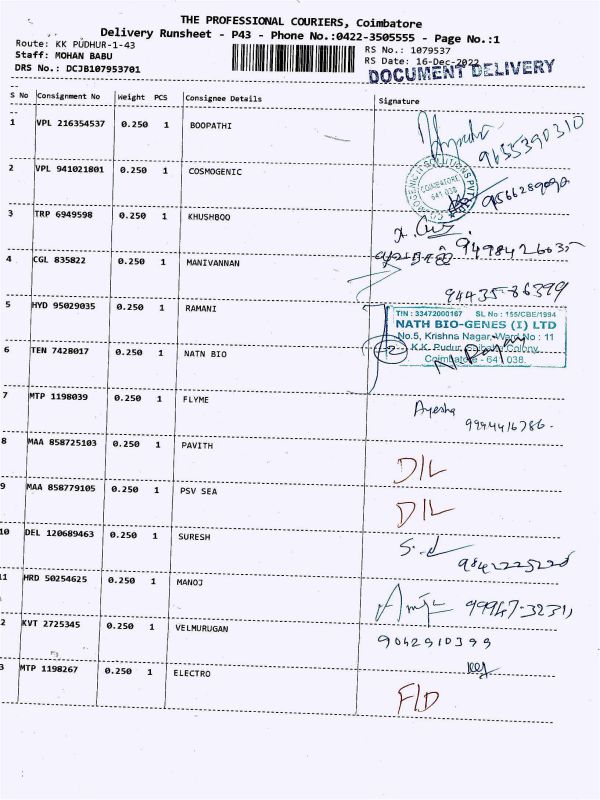 THE PROFESSIONAL COURIERS, Coimbatore
Delivery Runsheet - P43 - Phone No.:0422-3505555 - Page No.:1
Route: KK PUDHUR-1-43
RS No.: 1079537
Staff: MOHAN BABU
RS Date: 16-Dec-2022
DRS No.: DCJB107953701
DOCUMENT DELIVERY
S No Consignment No Weight PCS Consignee Details Signature
1 VPL 216354537 0.250 1 BOOPATHI 9655390310
2 VPL 941021801 0.250 1 COSMOGENIC 9566289092
COIMBATORE
641 038
3 TRP 6949598 0.250 1 KHUSHBOO
4 CGL 835822 0.250 1 MANIVANNAN 9498426035
94435-86399
5 HYD 95029035 0.250 1 RAMANI
TIN : 33472000167 SL No : 155/CBE/1994
NATH BIO-GENES (I) LTD
No.5, Krishna Nagar, Ward No : 11
K.K. Pudur, Saibaba Colony,
Coimbatore - 641 038.
6 TEN 7428017 0.250 1 NATN BIO
7 MTP 1198039 0.250 1 FLYME Ayesha
9944416786-
8 MAA 858725103 0.250 1 PAVITH D/L
9 MAA 858779105 0.250 1 PSV SEA D/L
10 DEL 120689463 0.250 1 SURESH 9842225228
11 HRD 50254625 0.250 1 MANOJ 99947-32311
2 KVT 2725345 0.250 1 VELMURUGAN 9042910399
3 MTP 1198267 0.250 1 ELECTRO F/D